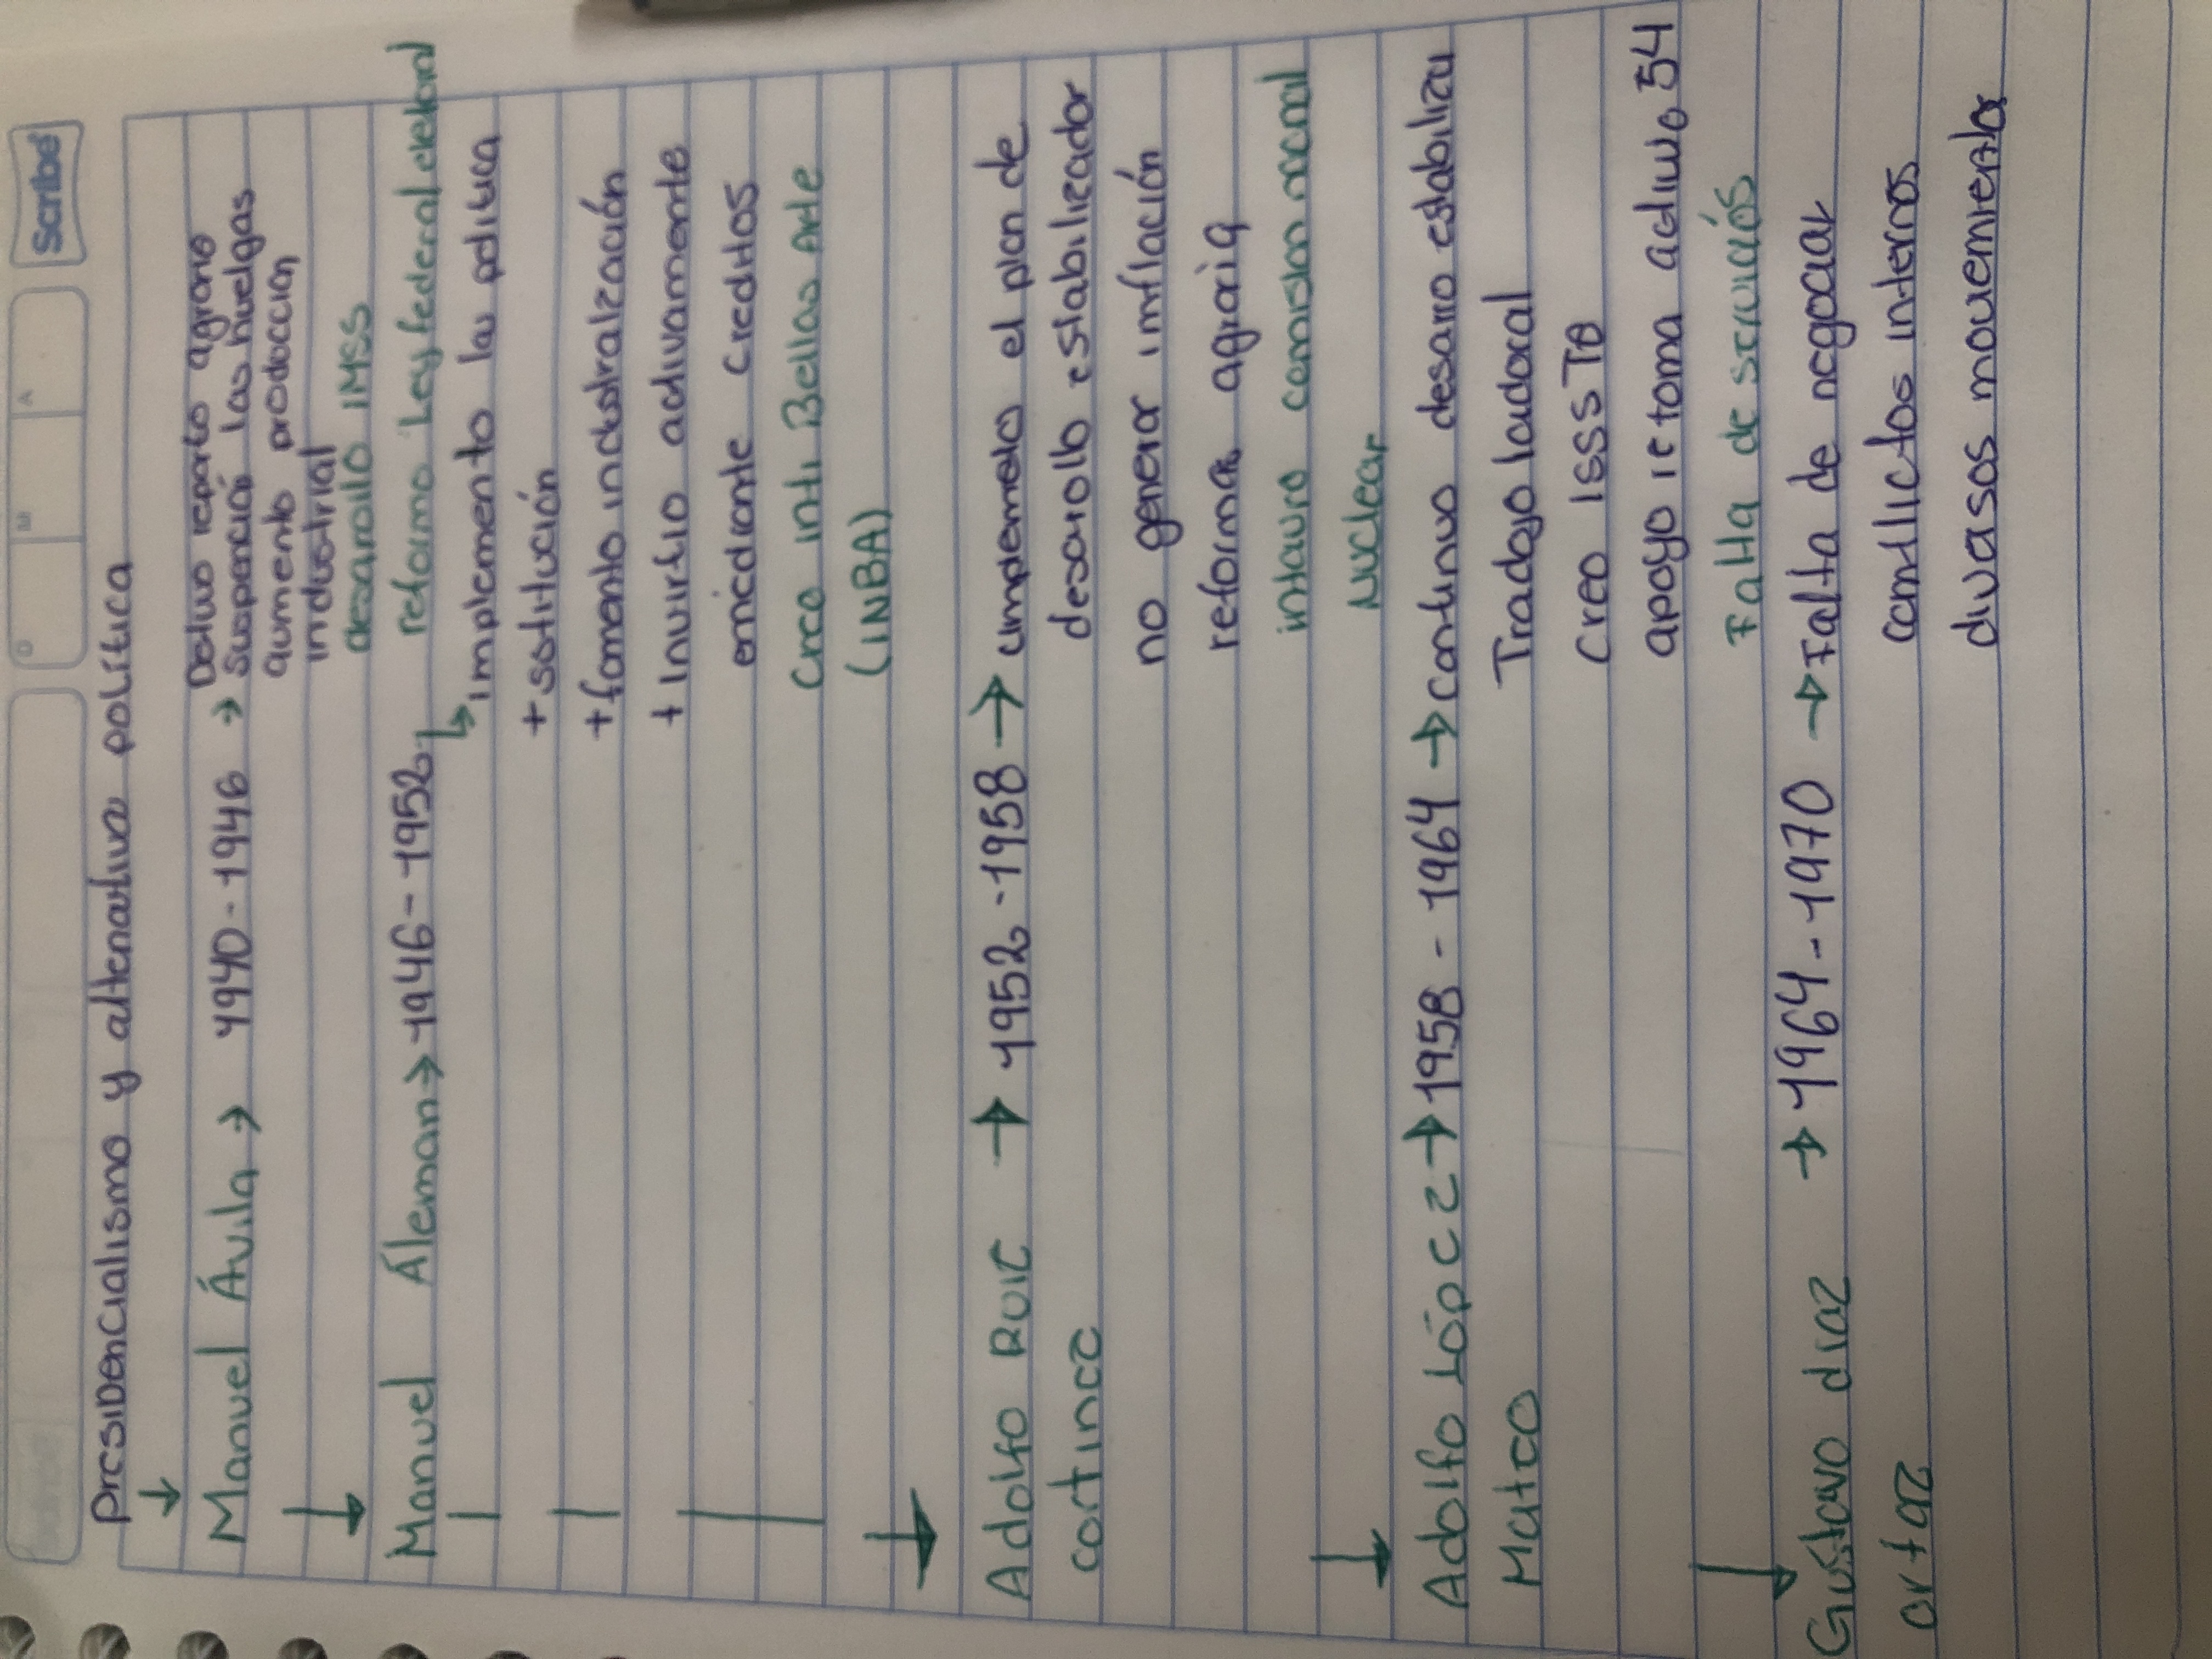 Scribe
D M A
Presidencialismo y altenativa política
Manuel Ávila → 1940-1946 → Detuvo reparto agrario
Suspenció las huelgas
aumento producción
industrial
desarrollo IMSS
Manuel Áleman → 1946-1952 reformo Ley federal
implemento la política
+ sotitución
+ fomento industralización
+ Invirtio activamente
emediante creditos
Crea inti Bellas Arte
(INBA)
Adolfo Ruiz → 1952-1958 → implemeto el plan de
cortinez desarollo estabilizador
no generar inflación
reforma agraria
intauro comision nacnal
Nuclear
Adolfo López → 1958-1964 → continuo desarro estabilizu
Mateo
Creo ISSSTE
apoyo retoma 54
Falta de servicios
Gustavo diaz → 1964-1970 → Falta de negociar
ortaz conflictos internos
divasos movimientos